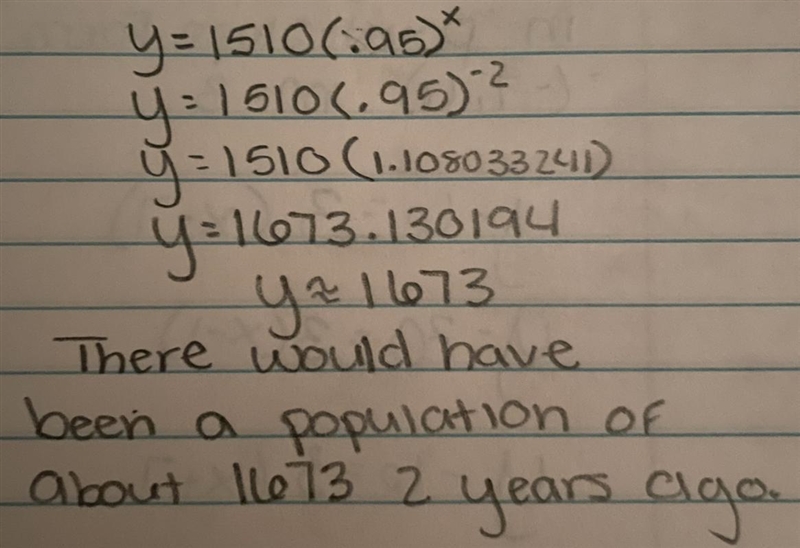 y=1510(.95)^x
y=1510(.95)^-2
y=1510(1.108033241)
y=1673.130194
y≈1673
There would have
been a population of
about 1673 2 years ago.